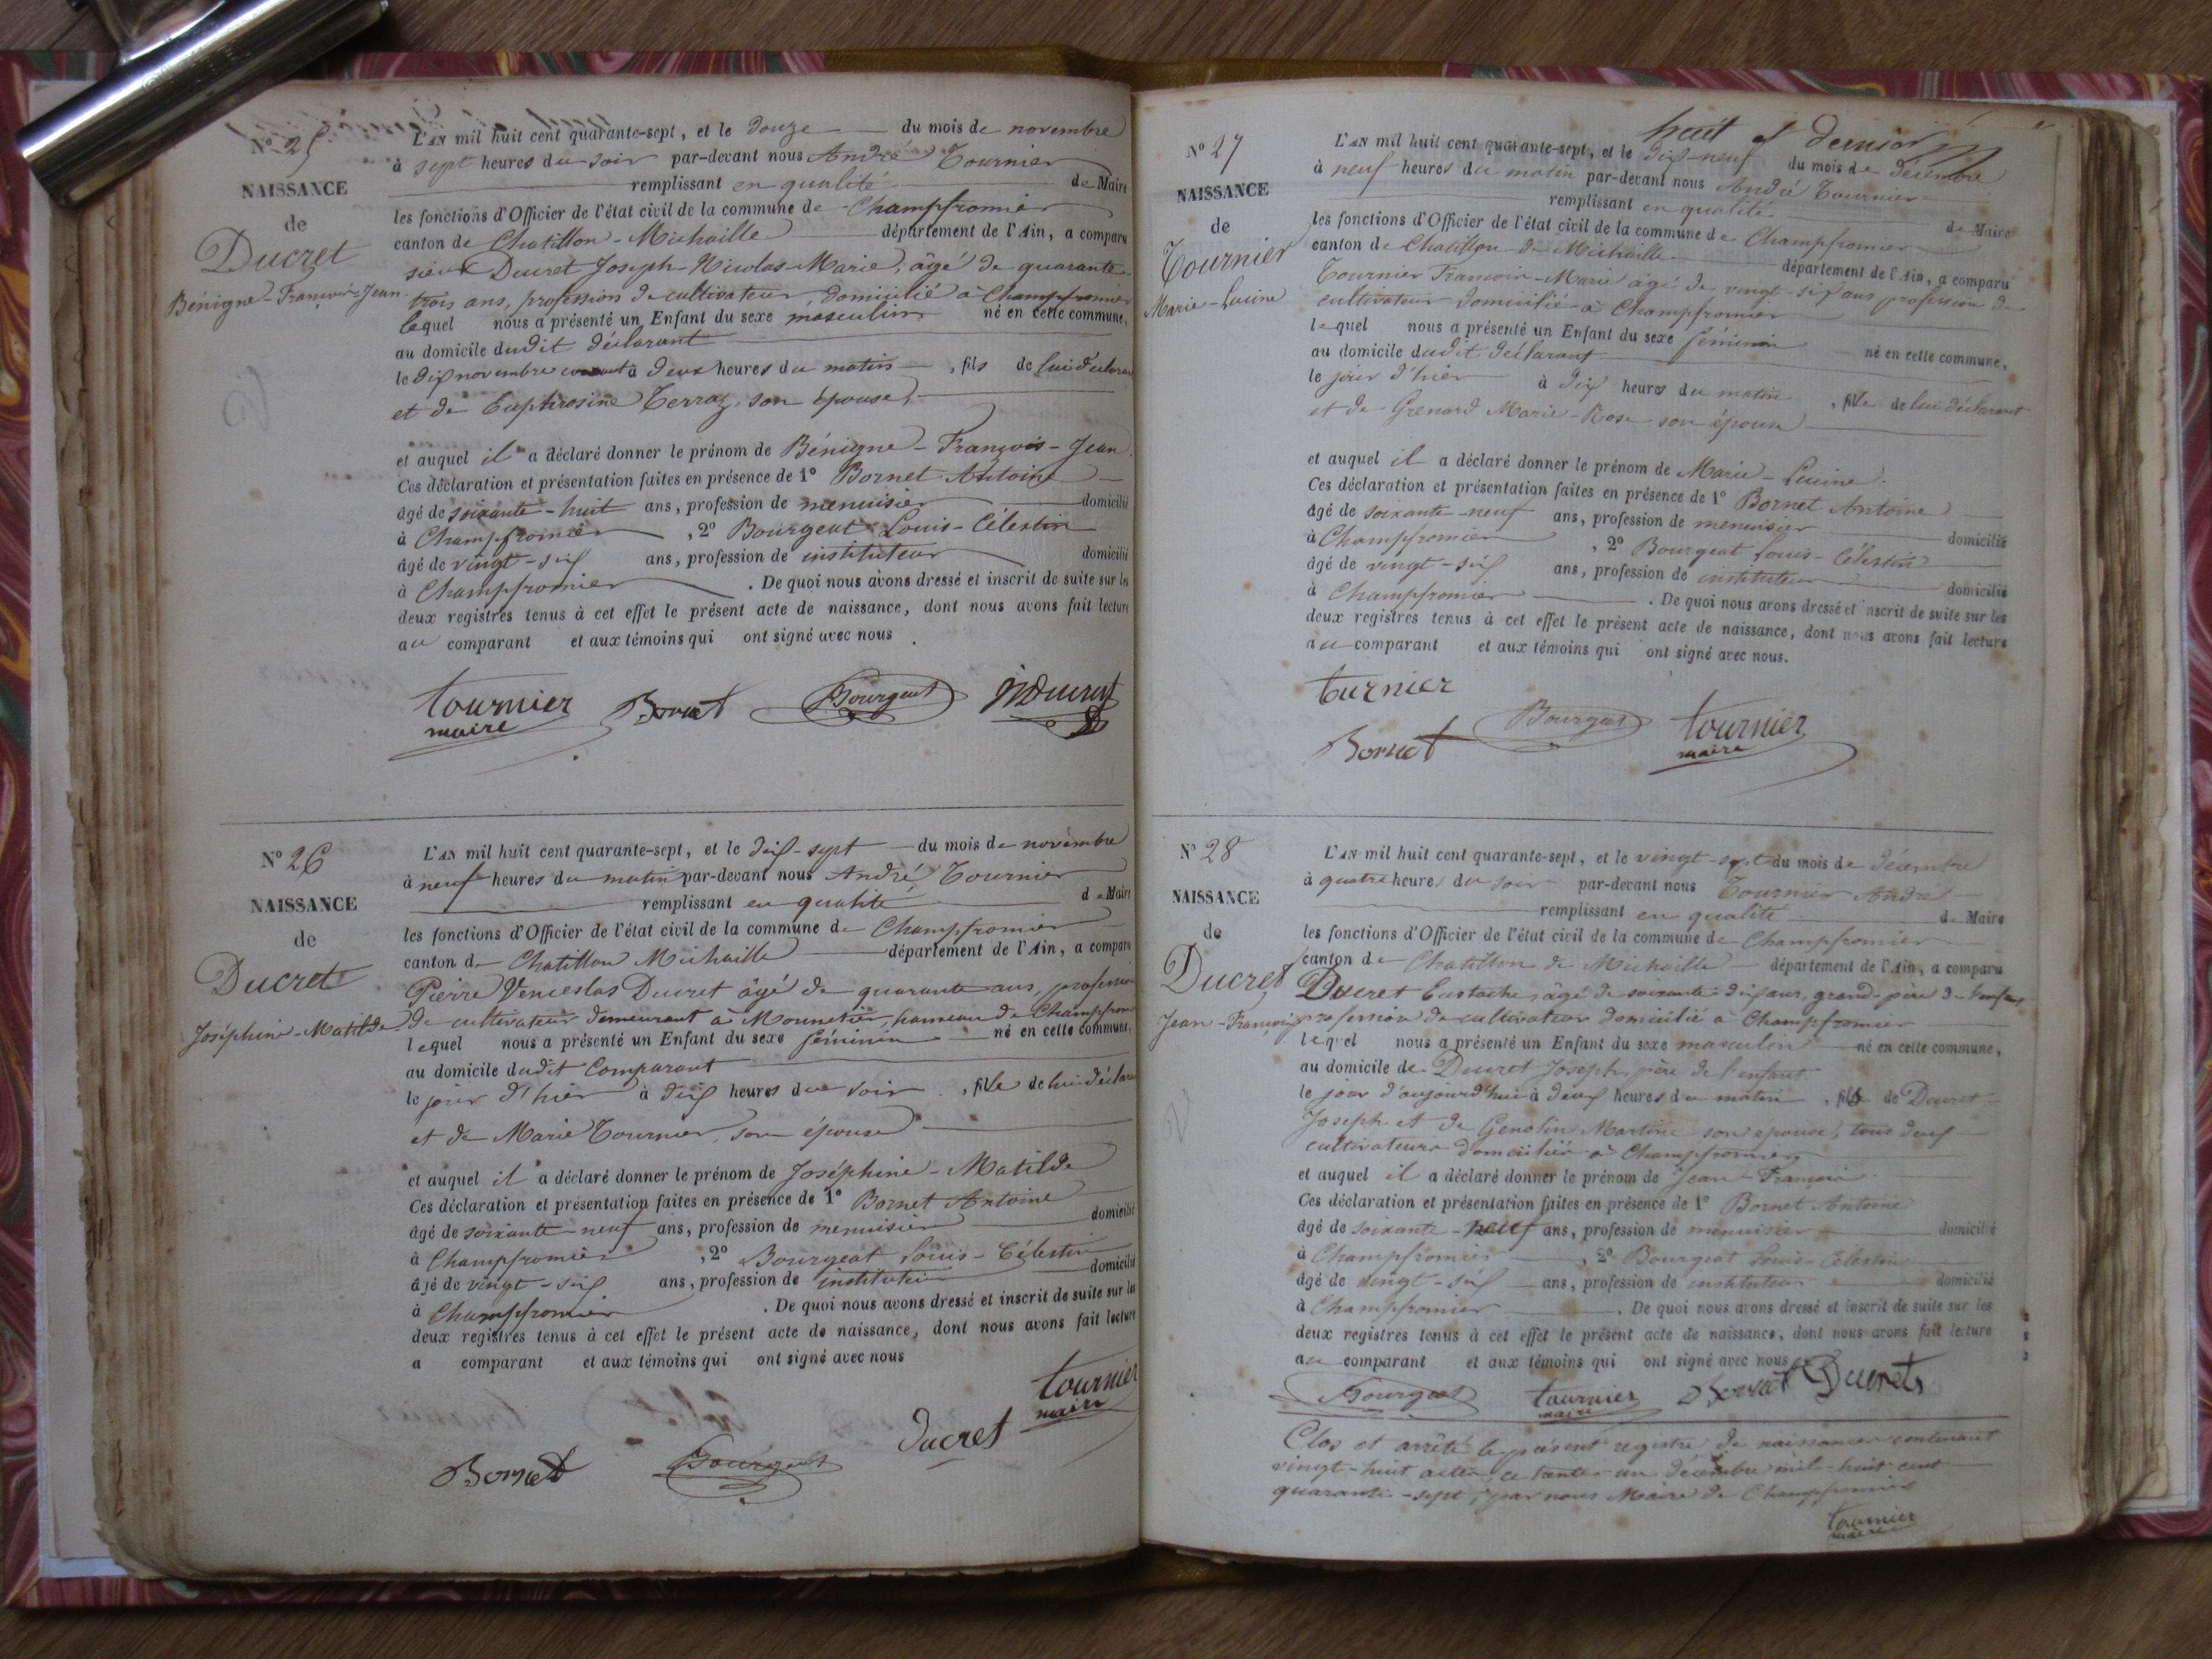 N° 25
NAISSANCE
de
Ducret
Bénigne-François-Jean
L'AN mil huit cent quarante-sept, et le douze du mois de novembre
à sept heures du soir par-devant nous André Tournier
remplissant en qualité de Maire
les fonctions d'Officier de l'état civil de la commune de Champfromier
canton de Chatillon-Michaille département de l'Ain, a comparu
sieur Ducret Joseph-Nicolas-Marie, âgé de quarante
trois ans, profession de cultivateur, domicilié à Champfromier
lequel nous a présenté un Enfant du sexe masculin né en cette commune,
au domicile dudit déclarant
le dix novembre courant à deux heures du matin, fils de lui déclarant
et de Euphrosine Terraz, son épouse,
et auquel il a déclaré donner le prénom de Bénigne-François-Jean.
Ces déclaration et présentation faites en présence de 1° Bornet Antoine
âgé de soixante-huit ans, profession de menuisier domicilié
à Champfromier, 2° Bourgeat Louis-Célestin
âgé de vingt-six ans, profession de instituteur domicilié
à Champfromier. De quoi nous avons dressé et inscrit de suite sur les
deux registres tenus à cet effet le présent acte de naissance, dont nous avons fait lecture
au comparant et aux témoins qui ont signé avec nous.
tournier Bornet Bourgeat Ducret
maire
N° 26
NAISSANCE
de
Ducret
Joséphine-Matilde
L'AN mil huit cent quarante-sept, et le dix-sept du mois de novembre
à neuf heures du matin par-devant nous André Tournier
remplissant en qualité de Maire
les fonctions d'Officier de l'état civil de la commune de Champfromier
canton de Chatillon Michaille département de l'Ain, a comparu
Pierre Venceslas Ducret âgé de quarante ans, profession
de cultivateur demeurant à Monnetier, hameau de Champfromier
lequel nous a présenté un Enfant du sexe féminin né en cette commune,
au domicile dudit Comparant
le jour d'hier à dix heures du soir, fille de lui déclarant
et de Marie Tournier, son épouse
et auquel il a déclaré donner le prénom de Joséphine-Matilde
Ces déclaration et présentation faites en présence de 1° Bornet Antoine
âgé de soixante-neuf ans, profession de menuisier domicilié
à Champfromier, 2° Bourgeat Louis-Célestin
âgé de vingt-six ans, profession de instituteur domicilié
à Champfromier. De quoi nous avons dressé et inscrit de suite sur les
deux registres tenus à cet effet le présent acte de naissance, dont nous avons fait lecture
a comparant et aux témoins qui ont signé avec nous
tournier
maire
Bornet Bourgeat ducret
huit et dernier
N° 27
NAISSANCE
de
Tournier
Marie-Lucine
L'AN mil huit cent quarante-sept, et le dix-neuf du mois de décembre
à neuf heures du matin par-devant nous André Tournier
remplissant en qualité de Maire
les fonctions d'Officier de l'état civil de la commune de Champfromier
canton de Chatillon de Michaille département de l'Ain, a comparu
Tournier François-Marie âgé de vingt-six ans profession de
cultivateur domicilié à Champfromier
lequel nous a présenté un Enfant du sexe féminin né en cette commune,
au domicile dudit déclarant
le jour d'hier à dix heures du matin, fille de lui déclarant
et de Grenard Marie-Rose son épouse
et auquel il a déclaré donner le prénom de Marie-Lucine.
Ces déclaration et présentation faites en présence de 1° Bornet Antoine
âgé de soixante-neuf ans, profession de menuisier domicilié
à Champfromier, 2° Bourgeat Louis-Célestin
âgé de vingt-six ans, profession de instituteur domicilié
à Champfromier. De quoi nous avons dressé et inscrit de suite sur les
deux registres tenus à cet effet le présent acte de naissance, dont nous avons fait lecture
au comparant et aux témoins qui ont signé avec nous.
turnier
Bornet Bourgeat tournier
maire
N° 28
NAISSANCE
de
Ducret
Jean-François
L'AN mil huit cent quarante-sept, et le vingt-sept du mois de décembre
à quatre heures du soir par-devant nous Tournier André
remplissant en qualité de Maire
les fonctions d'Officier de l'état civil de la commune de Champfromier
canton de Chatillon de Michaille département de l'Ain, a comparu
Ducret Eustache, âgé de soixante-dix ans, grand-père de l'enfant
profession de cultivateur domicilié à Champfromier
lequel nous a présenté un Enfant du sexe masculin né en cette commune,
au domicile de Ducret Joseph, père de l'enfant
le jour d'aujourd'hui à deux heures du matin, fils de Ducret
Joseph et de Genolin Martine son épouse, tous deux
cultivateurs domiciliés à Champfromier
et auquel il a déclaré donner le prénom de Jean-François
Ces déclaration et présentation faites en présence de 1° Bornet Antoine
âgé de soixante-neuf ans, profession de menuisier domicilié
à Champfromier, 2° Bourgeat Louis-Célestin
âgé de vingt-six ans, profession de instituteur domicilié
à Champfromier. De quoi nous avons dressé et inscrit de suite sur les
deux registres tenus à cet effet le présent acte de naissance, dont nous avons fait lecture
au comparant et aux témoins qui ont signé avec nous
Bourgeat tournier Bornet Ducret
maire
Clos et arrêté le présent registre de naissances contenant
vingt-huit actes, ce trente-un décembre mil-huit-cent
quarante-sept, par nous Maire de Champfromier
tournier
maire